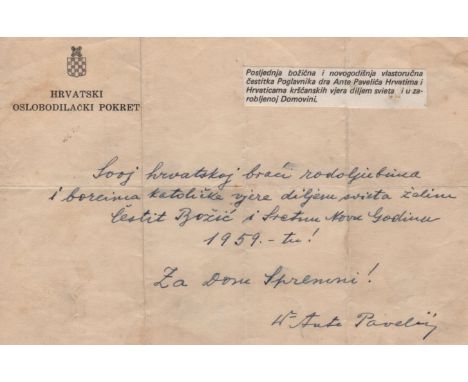 HRVATSKI
OSLOBODILAČKI POKRET
Posljednja božićna i novogodišnja vlastoručna
čestitka Poglavnika dra Ante Pavelića Hrvatima i
Hrvaticama kršćanskih vjera diljem svieta i u za-
robljenoj Domovini.
Svoj hrvatskoj braći rodoljubima
i borcima katoličke vjere diljem svieta želim
čestit Božić i Sretnu Novu Godinu
1959.-tu!
Za Dom Spremni!
Dr Ante Pavelić